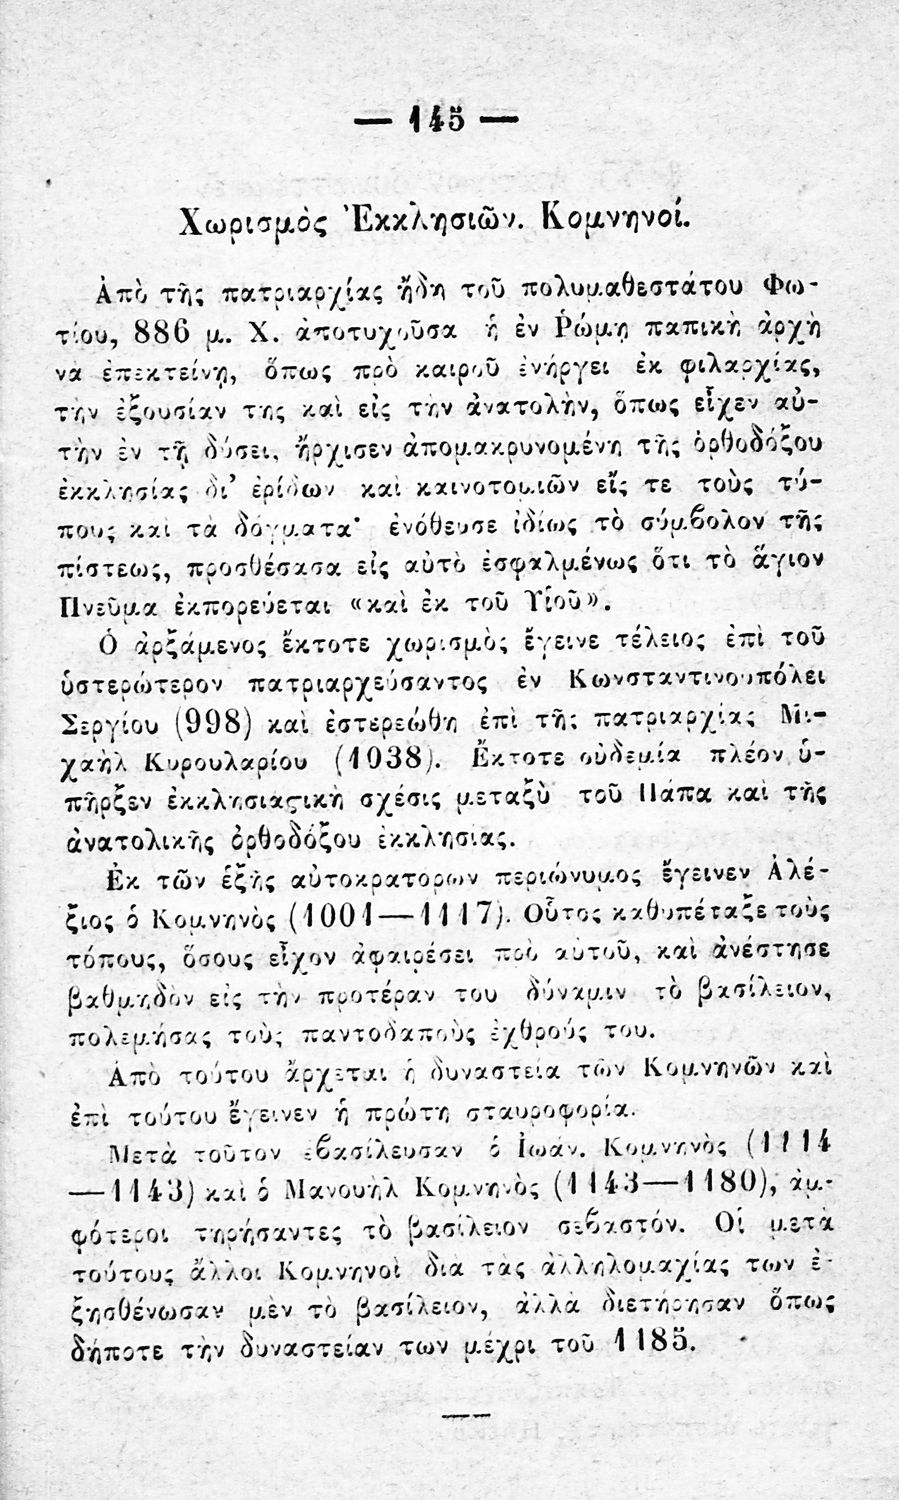 — 145 —
Χωρισμὸς Ἐκκλησιῶν. Κομνηνοί.
Ἀπὸ τῆς πατριαρχίας ἤδη τοῦ πολυμαθεστάτου Φω-
τίου, 886 μ. Χ. ἀποτυχοῦσα ἡ ἐν Ῥώμῃ παπικὴ ἀρχὴ
νὰ ἐπεκτείνῃ, ὅπως πρὸ καιροῦ ἐνήργει ἐκ φιλαρχίας,
τὴν ἐξουσίαν της καὶ εἰς τὴν ἀνατολὴν, ὅπως εἶχεν αὐ-
τὴν ἐν τῇ δύσει, ἤρχισεν ἀπομακρυνομένη τῆς ὀρθοδόξου
ἐκκλησίας δι’ ἐρίδων καὶ καινοτομιῶν εἴς τε τοὺς τύ-
πους καὶ τὰ δόγματα· ἐνόθευσε ἰδίως τὸ σύμβολον τῆς
πίστεως, προσθέσασα εἰς αὐτὸ ἐσφαλμένως ὅτι τὸ ἅγιον
Πνεῦμα ἐκπορεύεται «καὶ ἐκ τοῦ Υἱοῦ».
Ὁ ἀρξάμενος ἔκτοτε χωρισμὸς ἔγεινε τέλειος ἐπὶ τοῦ
ὑστερώτερον πατριαρχεύσαντος ἐν Κωνσταντινουπόλει
Σεργίου (998) καὶ ἐστερεώθη ἐπὶ τῆς πατριαρχίας Μι-
χαὴλ Κυρουλαρίου (1038). Ἔκτοτε οὐδεμία πλέον ὑ-
πῆρξεν ἐκκλησιαςικὴ σχέσις μεταξὺ τοῦ Πάπα καὶ τῆς
ἀνατολικῆς ὀρθοδόξου ἐκκλησίας.
Ἐκ τῶν ἑξῆς αὐτοκρατόρων περιώνυμος ἔγεινεν Ἀλέ-
ξιος ὁ Κομνηνὸς (1001—1117). Οὗτος καθυπέταξε τοὺς
τόπους, ὅσους εἶχον ἀφαιρέσει πρὸ αὐτοῦ, καὶ ἀνέστησε
βαθμηδὸν εἰς τὴν προτέραν του δύναμιν τὸ βασίλειον,
πολεμήσας τοὺς παντοδαποὺς ἐχθρούς του.
Ἀπὸ τούτου ἄρχεται ἡ δυναστεία τῶν Κομνηνῶν καὶ
ἐπὶ τούτου ἔγεινεν ἡ πρώτη σταυροφορία.
Μετὰ τοῦτον ἐβασίλευσαν ὁ Ἰωάν. Κομνηνὸς (1114
—1143) καὶ ὁ Μανουὴλ Κομνηνὸς (1143—1180), ἀμ-
φότεροι τηρήσαντες τὸ βασίλειον σεβαστόν. Οἱ μετὰ
τούτους ἄλλοι Κομνηνοὶ διὰ τὰς ἀλληλομαχίας των ἐ-
ξησθένωσαν μὲν τὸ βασίλειον, ἀλλὰ διετήρησαν ὅπως
δήποτε τὴν δυναστείαν των μέχρι τοῦ 1185.